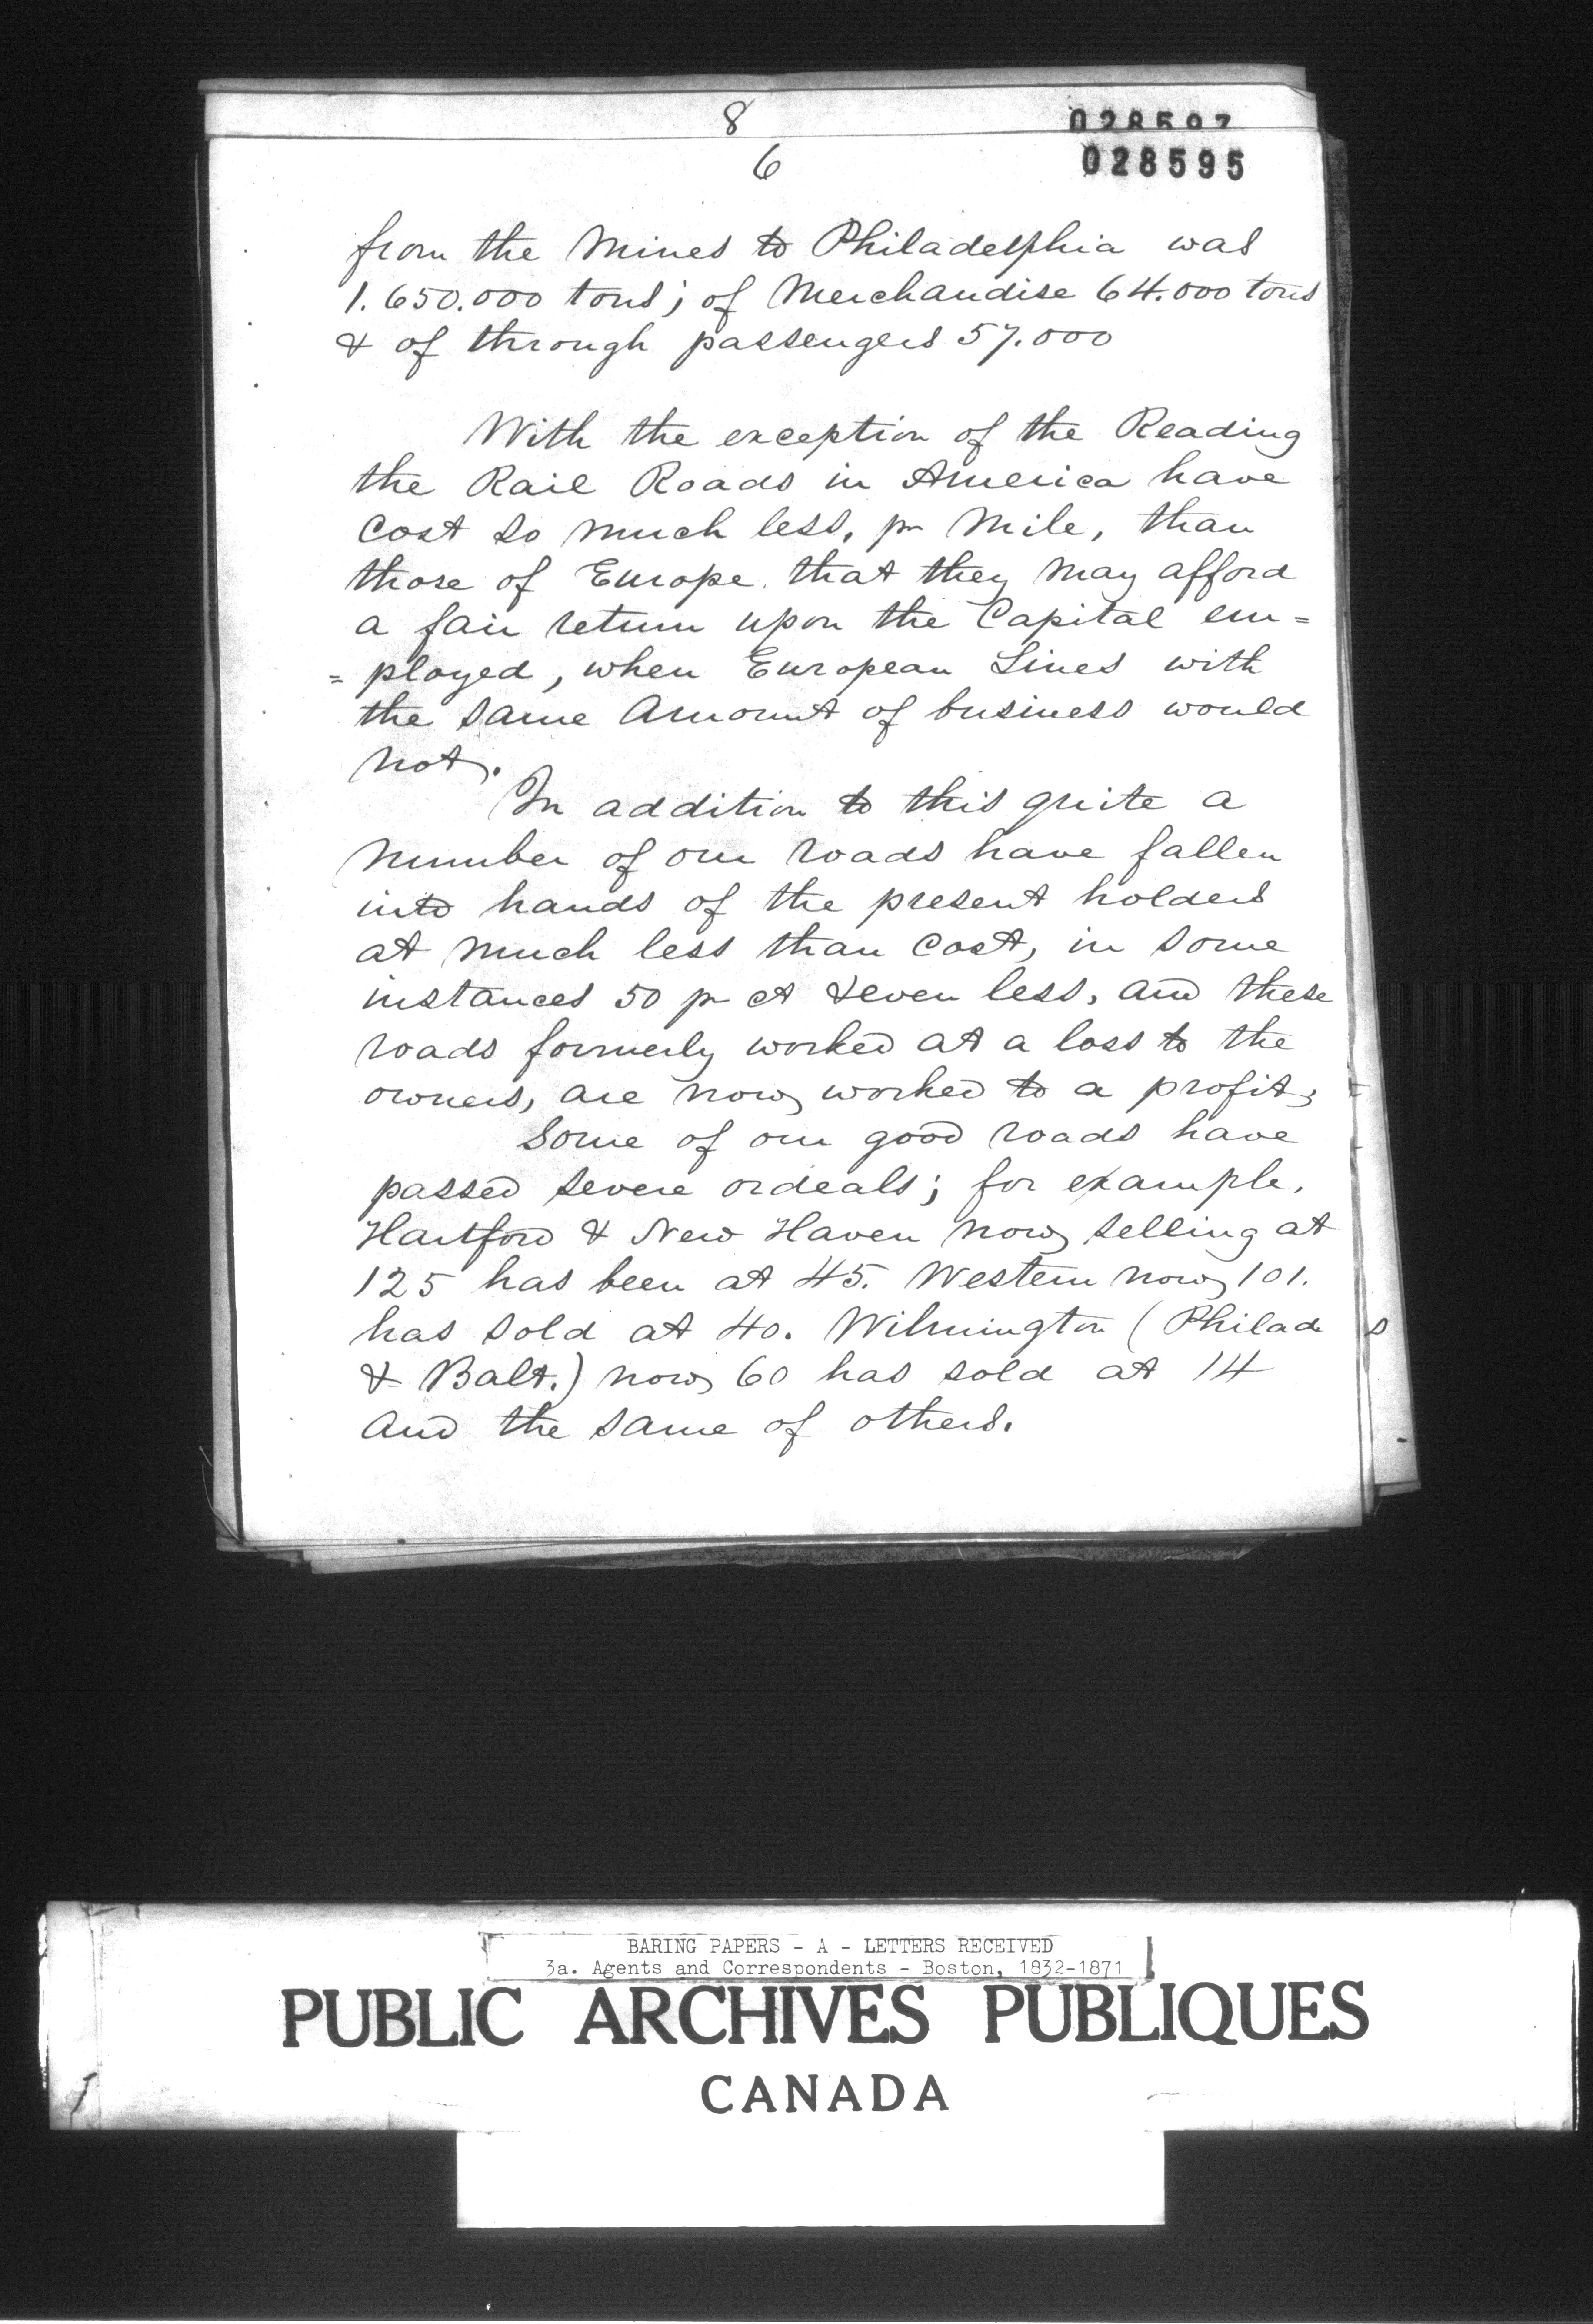 8
028597
6
028595
from the Mines to Philadelphia was
1.650.000 tons; of Merchandise 64.000 tons
& of through passengers 57.000
With the exception of the Reading
the Rail Roads in America have
cost so much less, pr Mile, than
those of Europe that they may afford
a fair return upon the Capital em=
=ployed, when European Lines with
the same Amount of business would
not.
In addition to this quite a
number of our roads have fallen
into hands of the present holders
at much less than cost, in some
instances 50 pr ct & even less, and these
roads formerly worked at a loss to the
owners, are now worked to a profit;
Some of our good roads have
passed severe ordeals; for example,
Hartford & New Haven now selling at
125 has been at 45. Western now 101.
has sold at 40. Wilmington (Philad
& Balt.) now 60 has sold at 14
and the same of others.
BARING PAPERS - A - LETTERS RECEIVED
3a. Agents and Correspondents - Boston, 1832-1871
PUBLIC ARCHIVES PUBLIQUES
CANADA